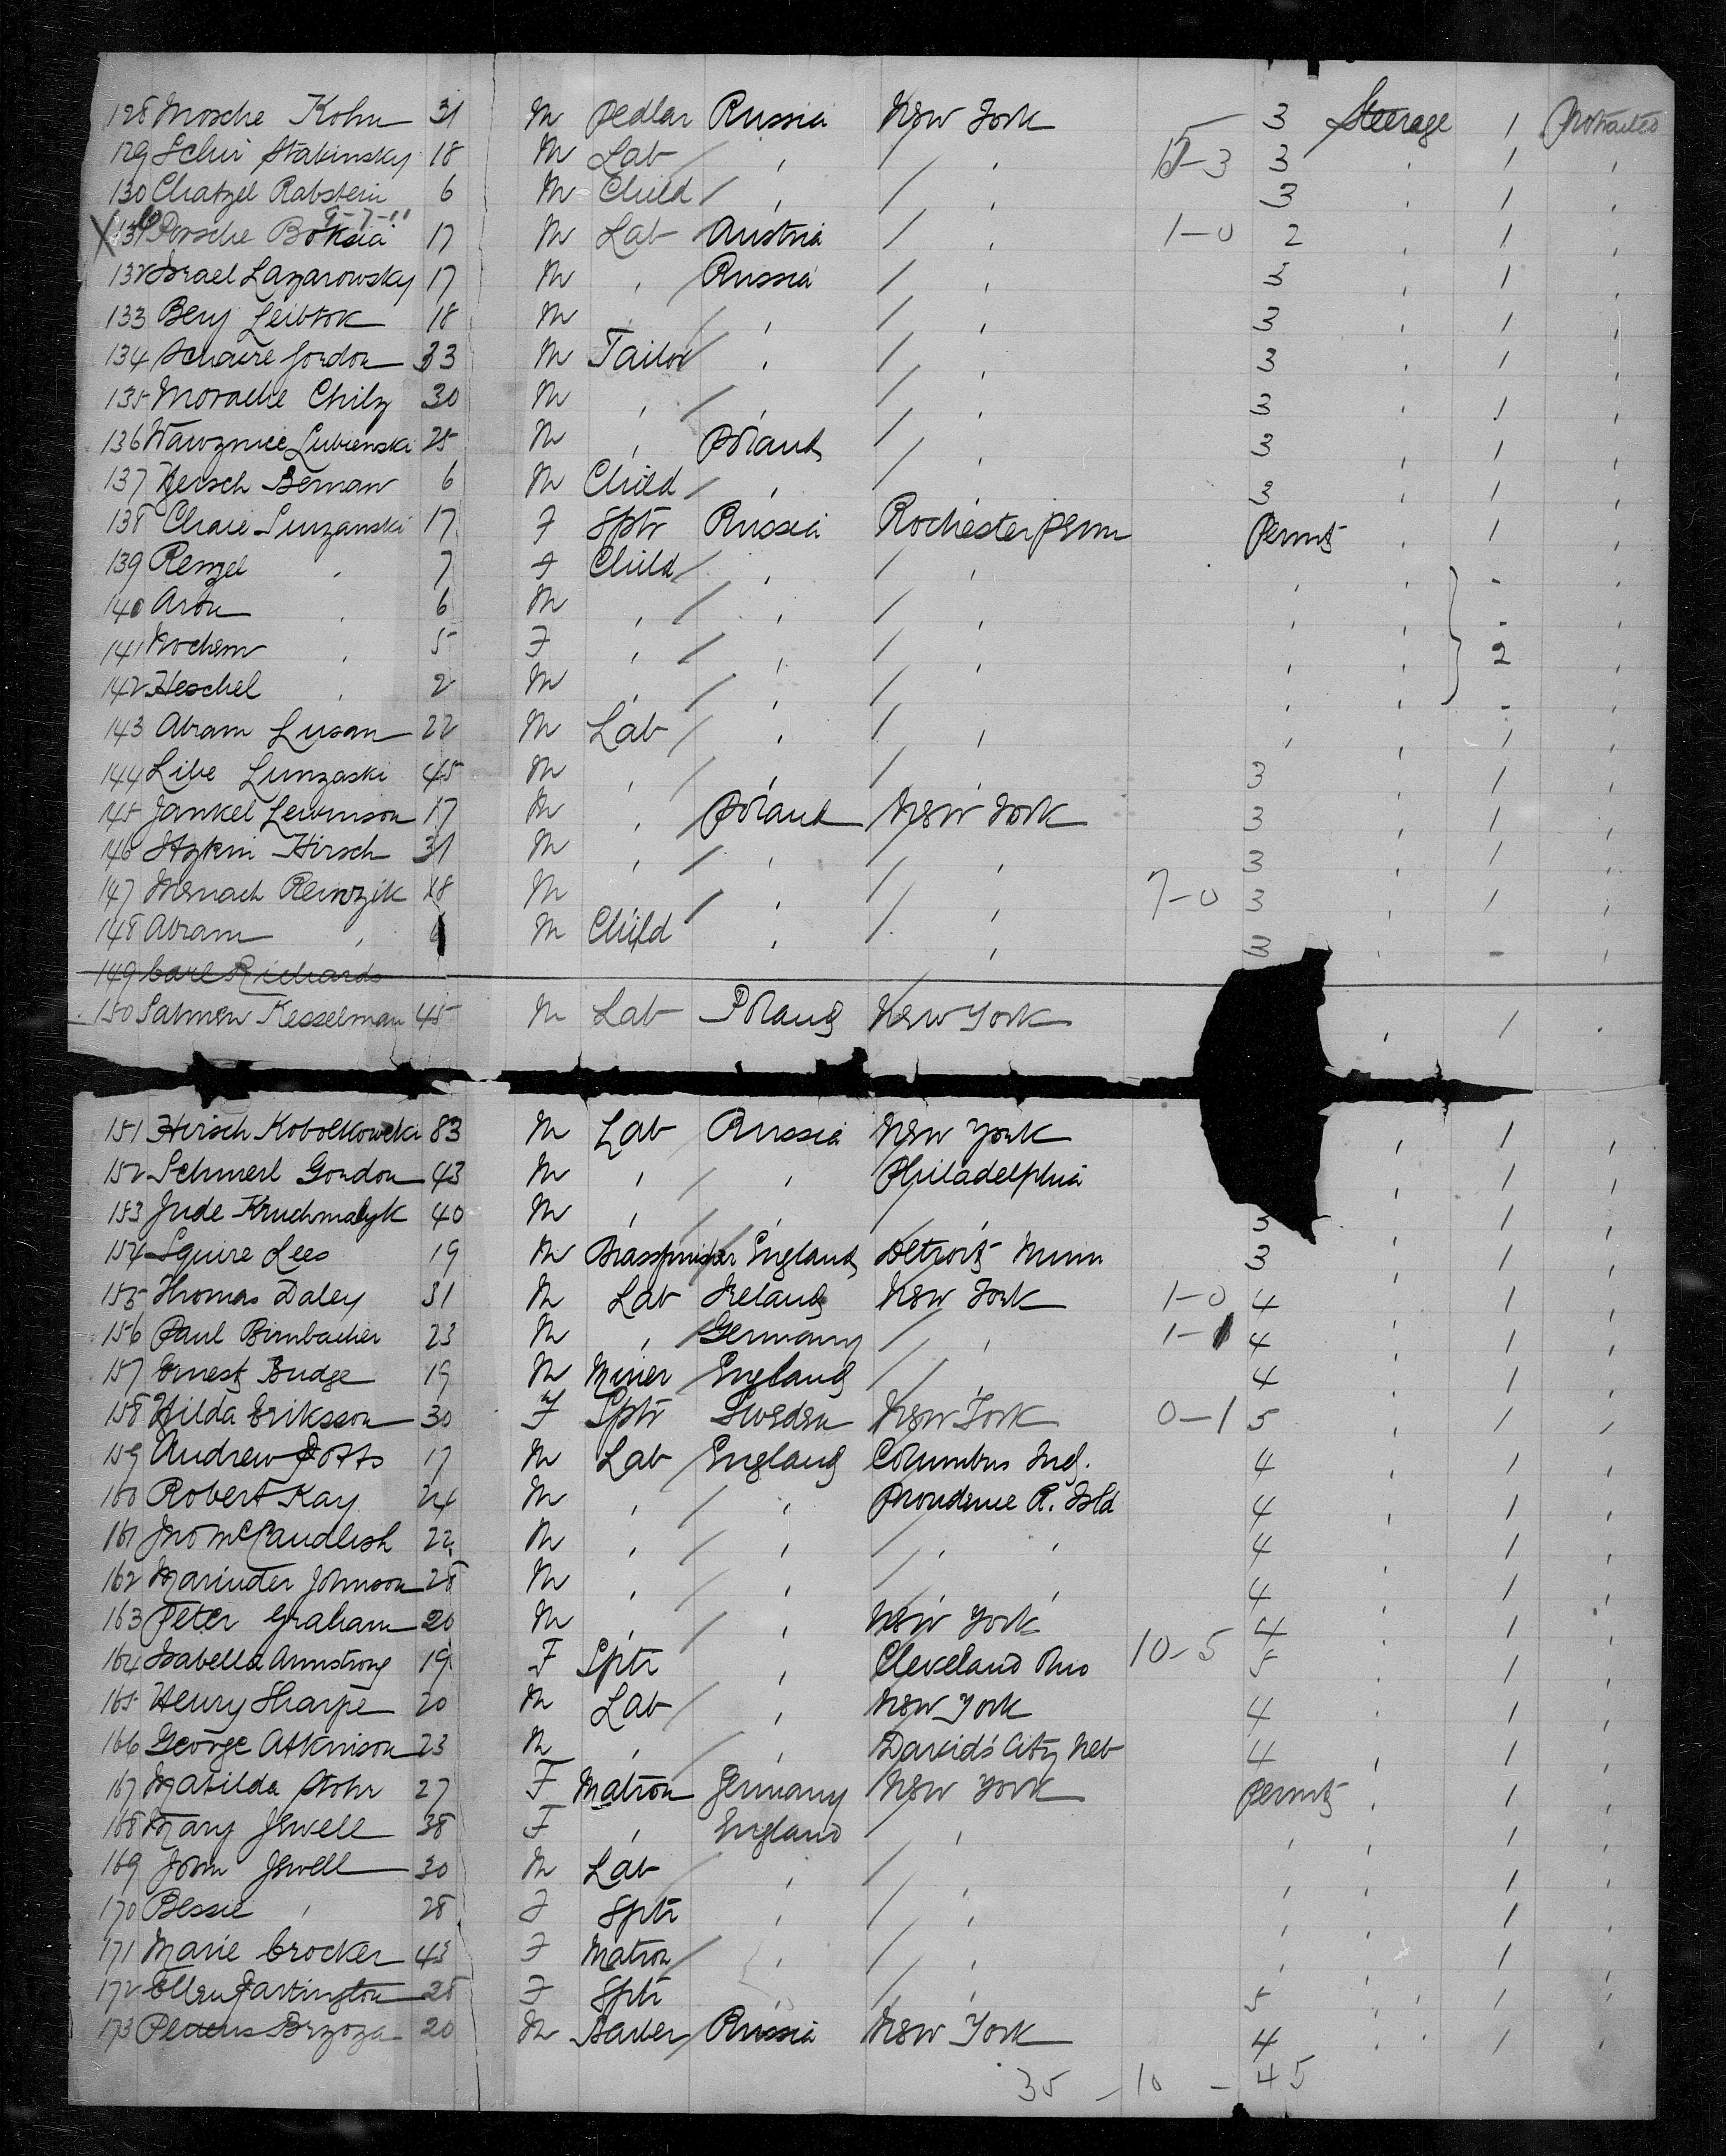 128 Mosche Kohn 31 M Pedlar Russia New York 3 Steerage 1 Protracted
129 Schii Stabinsky 18 M Lab / , / , 3 3 , 1 ,
130 Chatzel Rabstein 6 M Child / , / , 3 , 1 ,
X 131 Porsche Boksia 17 M Lab Austria / , 1-0 2 , 1 ,
132 Israel Lazarowsky 17 M , / Russia / , 3 , 1 ,
133 Berj Leibtok 18 M / , / , 3 , 1 ,
134 Schaire Gordon 33 M Tailor / , / , 3 , 1 ,
135 Morache Chilz 30 M , / , / , 3 , 1 ,
136 Lubienski 25 M , Poland / , 3 , 1 ,
137 Hersch Beman 6 M Child / , / , 3 , 1 ,
138 Chaie 17 F Sptr Russia Rochester Penn Permit , 1 ,
139 Renzel , 7 F Child / , / , , , - ,
140 Aron , 6 M , / , / , , , - ,
141 Rochem , 5 F , / , / , , , 2 ,
142 Heschel , 2 M , / , / , , , - ,
143 Abram Lusan 22 M Lab / , / , , , 1 ,
144 Libe Lunzaski 45 M , / , / , 3 , 1 ,
145 Jankel Lewinson 17 M , Poland New York 3 , 1 ,
146 Hirsch 31 M , / , / , 3 , 1 ,
147 Menach 18 M / , / , 7-0 3 , 1 ,
148 Abram , M Child , / , 3 , - ,
149 Carl Richards
150 Salmen Kesselman 45 M Lab Poland New York , 1 ,
151 Hirsch 83 M Lab Russia New York , 1 ,
152 Schmerl Gordon 43 M , / , Philadelphia , 1 ,
153 Jude Kruchmalyk 40 M , / , / , 3 , 1 ,
154 Squire Lees 19 M Brassfinisher England Detroit Minn 3 , 1 ,
155 Thomas Daley 31 M Lab Ireland New York 1-0 4 , 1 ,
156 Paul Birnbacher 23 M , / Germany / , 1-1 4 , 1 ,
157 Ernest Budge 19 M Miner England / , 4 , 1 ,
158 Hilda Eriksson 30 F Sptr Sweden New York 0-1 5 , 1 ,
159 Andrew Potts 17 M Lab England Columbus Ind. 4 , 1 ,
160 Robert Kay 24 M , / , Providence R. Isld 4 , 1 ,
161 Jno McCandlish 22 M , / , / , , 4 , 1 ,
162 Marinder Johnson 28 M , / , / , , 4 , 1 ,
163 Peter Graham 20 M , / , New York 4 , 1 ,
164 Isabella Armstrong 19 F Sptr , Cleveland Ohio 10-5 5 , 1 ,
165 Henry Sharpe 20 M Lab / , New York 4 , 1 ,
166 George Atkinson 23 M , / , David's City Neb 4 , 1 ,
167 Matilda Stohr 27 F Matron Germany New York Permit , 1 ,
168 Mary Jewell 38 F , England / , , , 1 ,
169 John Jewell 30 M Lab / , / , , , 1 ,
170 Bessie , 28 F Sptr , / , , , 1 ,
171 Marie Crocker 43 F Matron / , / , , , 1 ,
172 Ellen Partington 28 F Sptr , / , 5 , 1 ,
173 Brzoza 20 M Baker Russia New York 4 , 1 ,
35 - 10 - 45